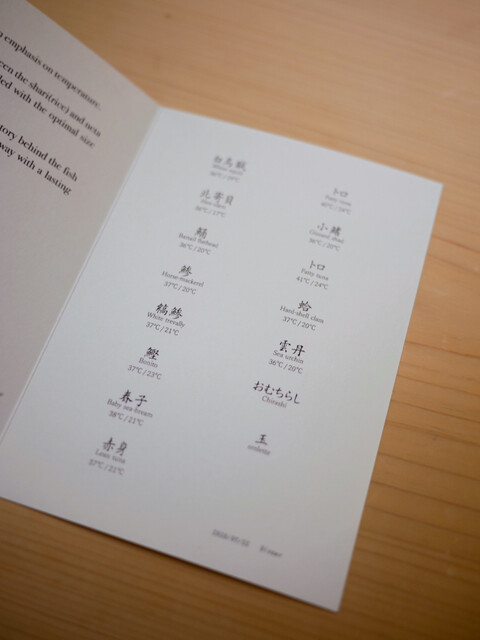 emphasis on temperature.
the shari(rice) and neta
with the optimal size
behind the fish
way with a lasting
北寄貝
36℃/20℃
鯵
Horse-mackerel
37℃/20℃
縞鯵
White trevally
37℃/21℃
鰹
Bonito
37℃/23℃
春子
Baby sea bream
38℃/21℃
赤身
Lean tuna
37℃/21℃
トロ
Fatty tuna
40℃/24℃
小鰭
Gizzard shad
36℃/20℃
トロ
Fatty tuna
41℃/24℃
蛤
Hard-shell clam
37℃/20℃
雲丹
Sea urchin
36℃/20℃
おむちらし
Chirashi
玉
omlette
Dinner